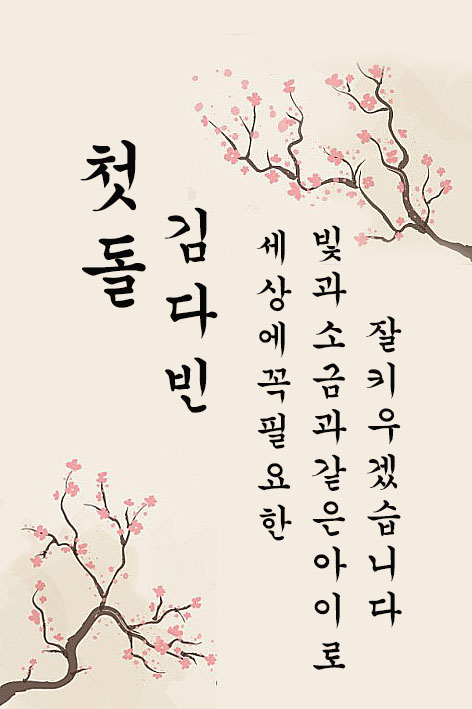 첫돌
김다빈
세상에꼭필요한
빛과소금과같은아이로
잘키우겠습니다